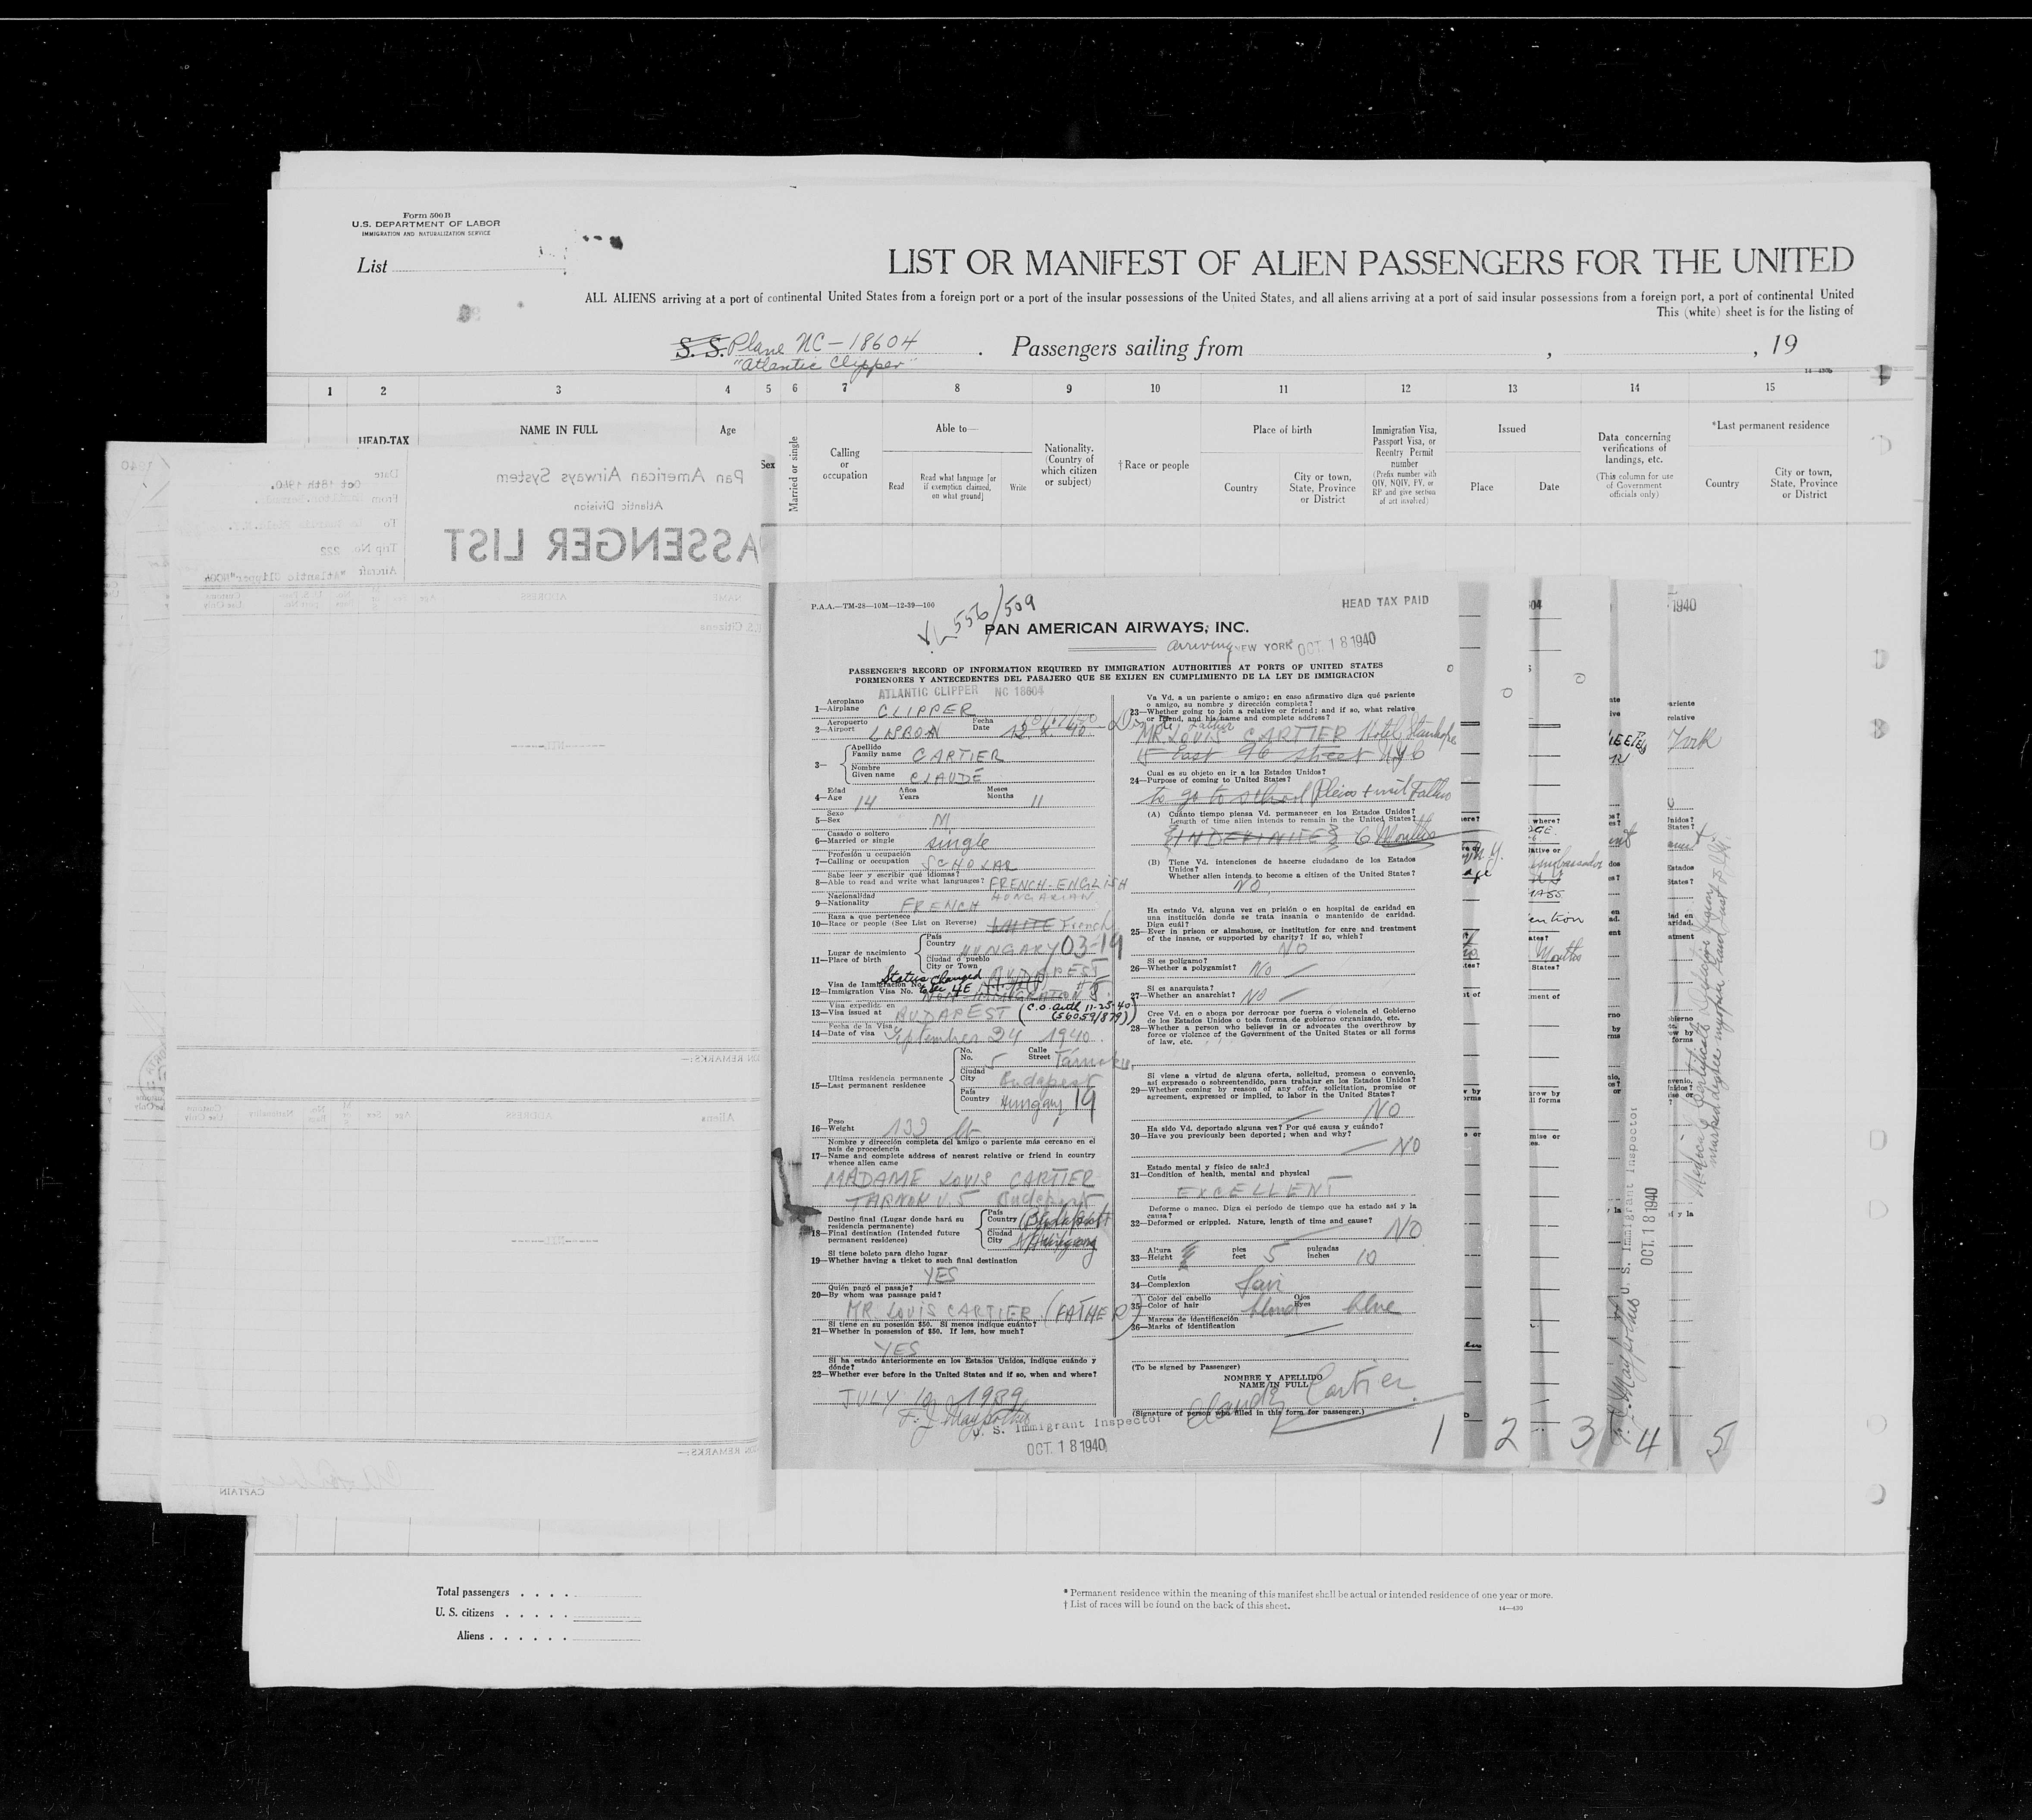 Form 500 B
U.S. DEPARTMENT OF LABOR
IMMIGRATION AND NATURALIZATION SERVICE
List
LIST OR MANIFEST OF ALIEN PASSENGERS FOR THE UNITED
ALL ALIENS arriving at a port of continental United States from a foreign port or a port of the insular possessions of the United States, and all aliens arriving at a port of said insular possessions from a foreign port, a port of continental United
This (white) sheet is for the listing of
S. S. Plane NC-18604 . Passengers sailing from , , 19
"Atlantic Clipper"
14—430b
1 2 3 4 5 6 7 8 9 10 11 12 13 14 15
HEAD-TAX
NAME IN FULL
Age
Sex
Married or single
Calling or occupation
Able to—
Read
Read what language [or if exemption claimed, on what ground]
Write
Nationality. (Country of which citizen or subject)
†Race or people
Place of birth
Country
City or town, State, Province or District
Immigration Visa, Passport Visa, or Reentry Permit number
(Prefix number with QIV, NQIV, PV, or RP and give section of act involved)
Issued
Place
Date
Data concerning verifications of landings, etc.
(This column for use of Government officials only)
*Last permanent residence
Country
City or town, State, Province or District
Pan American Airways System
Atlantic Division
PASSENGER LIST
Date Oct 18th 1940.
From
To
Trip No 222
Aircraft "Atlantic Clipper"
NAME ADDRESS
U.S. Citizens
Aliens ADDRESS
CAPTAIN
P.A.A.—TM-28—10M—12-39—100
556/509
HEAD TAX PAID
PAN AMERICAN AIRWAYS, INC.
arriving NEW YORK OCT. 18 1940
PASSENGER'S RECORD OF INFORMATION REQUIRED BY IMMIGRATION AUTHORITIES AT PORTS OF UNITED STATES
PORMENORES Y ANTECEDENTES DEL PASAJERO QUE SE EXIJEN EN CUMPLIMIENTO DE LA LEY DE INMIGRACION
ATLANTIC CLIPPER NC 18604
Aeroplano
1—Airplane CLIPPER
Aeropuerto Fecha
2—Airport LISBOA Date 12. X. 40
Apellido
Family name CARTIER
3—
Nombre
Given name CLAUDE
Edad Años Meses
4—Age 14 Years Months 11
Sexo
5—Sex M
Casado o soltero
6—Married or single single
Profesión u ocupación
7—Calling or occupation SCHOLAR
Sabe leer y escribir qué idiomas?
8—Able to read and write what languages? FRENCH-ENGLISH
HUNGARIAN
Nacionalidad
9—Nationality FRENCH
Raza a que pertenece
10—Race or people (See List on Reverse) WHITE French
Lugar de nacimiento
11—Place of birth
País
Country HUNGARY 03-19
Ciudad o pueblo
City or Town BUDAPEST
Status changed
Visa de Inmigración No.
12—Immigration Visa No. NON-IMMIGRATION
Visa expedida en
13—Visa issued at BUDAPEST (C.O. auth 11-25-40
(56059/879))
Fecha de la Visa
14—Date of visa September 24 1940.
Ultima residencia permanente
15—Last permanent residence
No. Calle
No. 5 Street
Ciudad
City Budapest
País
Country Hungary 19
Peso
16—Weight 132 lb
Nombre y dirección completa del amigo o pariente más cercano en el
país de procedencia
17—Name and complete address of nearest relative or friend in country
whence alien came
MADAME LOUIS CARTIER
TARNOK U. 5 Budapest
Destino final (Lugar donde hará su
residencia permanente)
18—Final destination (Intended future
permanent residence)
País
Country
Ciudad
City
Si tiene boleto para dicho lugar
19—Whether having a ticket to such final destination
YES
Quién pagó el pasaje?
20—By whom was passage paid?
MR. LOUIS CARTIER (FATHER)
Si tiene en su posesión $50. Si menos indique cuánto?
21—Whether in possession of $50. If less, how much?
YES
Si ha estado anteriormente en los Estados Unidos, indique cuándo y
dónde?
22—Whether ever before in the United States and if so, when and where?
JULY 10, 1939
U. S. Immigrant Inspector
OCT. 18 1940
Va Vd. a un pariente o amigo; en caso afirmativo diga qué pariente
o amigo, su nombre y dirección completa?
23—Whether going to join a relative or friend; and if so, what relative
or friend, and his name and complete address?
Father
MR. LOUIS CARTIER Hotel Stanhope
15 East 96 street N.Y.C
Cual es su objeto en ir a los Estados Unidos?
24—Purpose of coming to United States?
to go to school Pleas + visit Father
(A) Cuánto tiempo piensa Vd. permanecer en los Estados Unidos?
Length of time alien intends to remain in the United States?
INDEFINITE 6 Months
(B) Tiene Vd. intenciones de hacerse ciudadano de los Estados
Unidos?
Whether alien intends to become a citizen of the United States?
NO
Ha estado Vd. alguna vez en prisión o en hospital de caridad en
una institución donde se trata insania o mantenido de caridad.
Diga cuál?
25—Ever in prison or almshouse, or institution for care and treatment
of the insane, or supported by charity? If so, which?
NO
Si es polígamo?
26—Whether a polygamist? NO
Si es anarquista?
27—Whether an anarchist? NO
Cree Vd. en o aboga por derrocar por fuerza o violencia el Gobierno
de los Estados Unidos o toda forma de gobierno organizado, etc.
28—Whether a person who believes in or advocates the overthrow by
force or violence of the Government of the United States or all forms
of law, etc.
Si viene a virtud de alguna oferta, solicitud, promesa o convenio,
así expresado o sobreentendido, para trabajar en los Estados Unidos?
29—Whether coming by reason of any offer, solicitation, promise or
agreement, expressed or implied, to labor in the United States?
NO
Ha sido Vd. deportado alguna vez? Por qué causa y cuándo?
30—Have you previously been deported; when and why?
NO
Estado mental y físico de salud
31—Condition of health, mental and physical
EXCELLENT
Deforme o manco. Diga el período de tiempo que ha estado así y la
causa?
32—Deformed or crippled. Nature, length of time and cause?
NO
Altura pies pulgadas
33—Height feet 5 inches 10
Cutis
34—Complexion fair
Color del cabello Ojos
35—Color of hair blond Eyes blue
Marcas de identificación
36—Marks of identification
(To be signed by Passenger)
NOMBRE Y APELLIDO
NAME IN FULL
Claude Cartier
(Signature of person who filled in this form for passenger.)
1 2 3 4 5
1940
York
U. S. Immigrant Inspector
OCT. 18 1940
Total passengers . . . .
U. S. citizens . . . . .
Aliens . . . . . .
* Permanent residence within the meaning of this manifest shall be actual or intended residence of one year or more.
† List of races will be found on the back of this sheet.
14—430